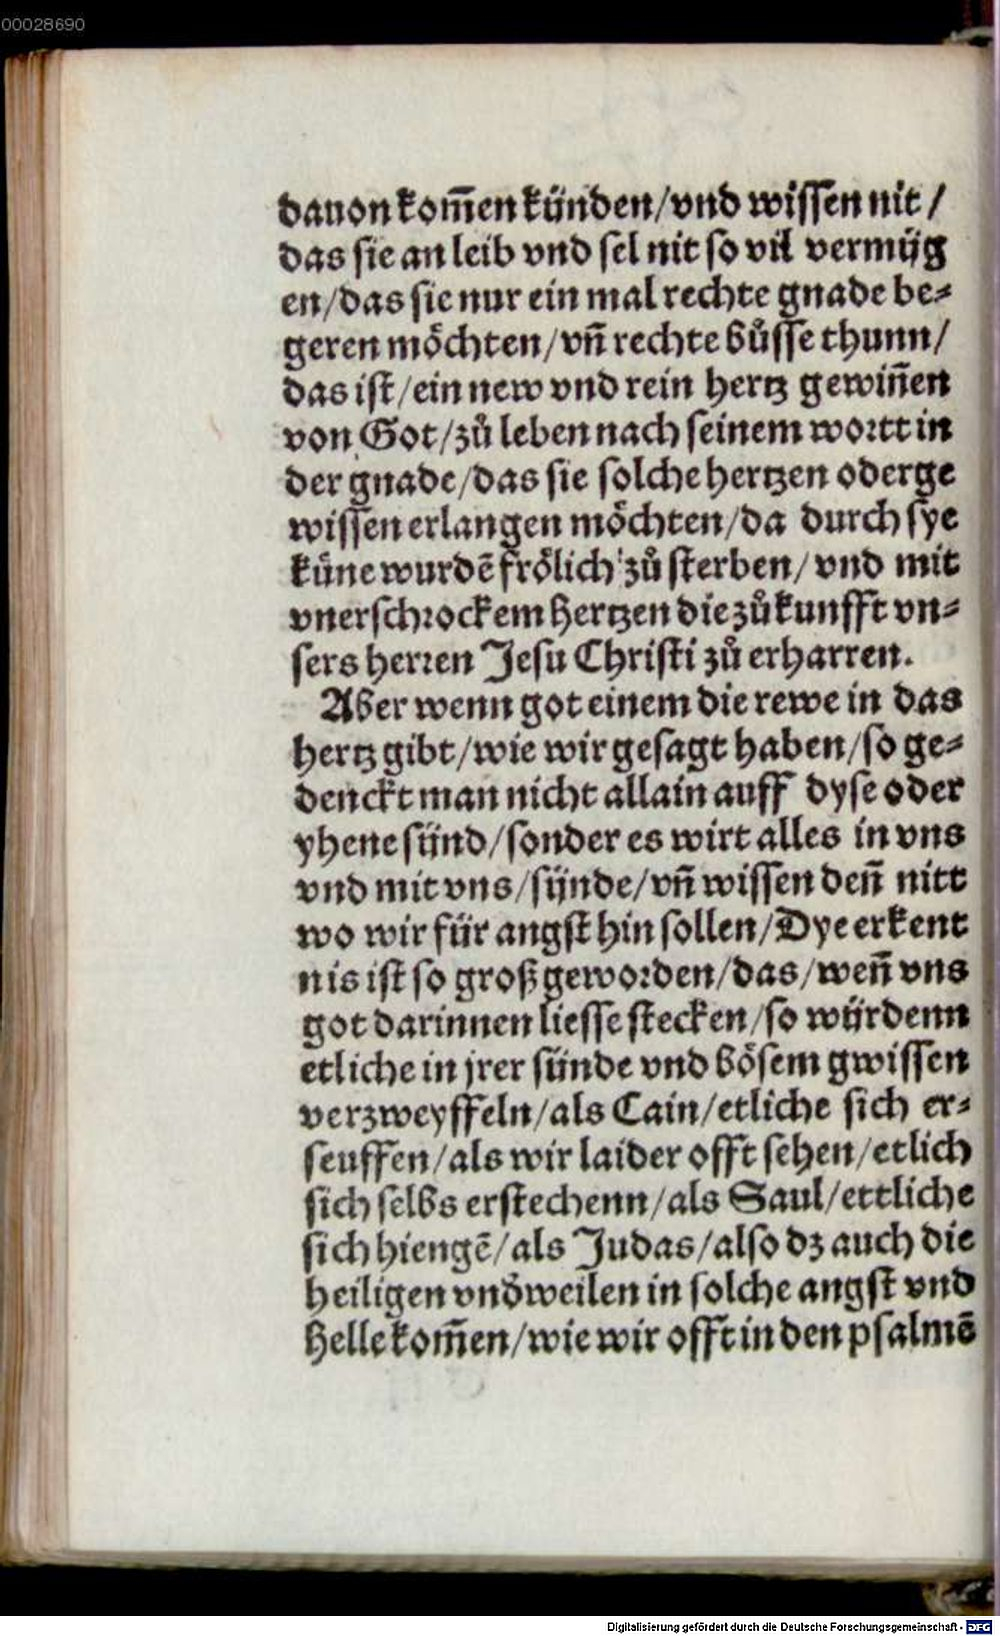 00028690
dauon kom̅en künden/vnd wissen nit/
das sie an leib vnd sel nit so vil vermüg
en/das sie nur ein mal rechte gnade be⸗
geren möchten/vn̅ rechte bůsse thunn/
das ist/ein new vnd rein hertz gewin̅en
von Got/zů leben nach seinem wortt in
der gnade/das sie solche hertzen oder ge
wissen erlangen möchten/da durch sye
küne wurdē frölich zů sterben/vnd mit
vnerschrockem hertzen die zůkunfft vn⸗
sers herren Jesu Christi zů erharren.
Aber wenn got einem die rewe in das
hertz gibt/wie wir gesagt haben/so ge⸗
denckt man nicht allain auff dyse oder
yhene sünd/sonder es wirt alles in vns
vnd mit vns/sünde/vn̅ wissen den̅ nitt
wo wir für angst hin sollen/Dye erkent
nis ist so groß geworden/das/wen̅ vns
got darinnen liesse stecken/so würdenn
etliche in jrer sünde vnd bösem gwissen
verzweyffeln/als Cain/etliche sich er⸗
seuffen/als wir laider offt sehen/etlich
sich selbs erstechenn/als Saul/ettliche
sich hiengē/als Judas/also dz auch die
heiligen vnd̕weilen in solche angst vnd
Helle kom̅en/wie wir offt in den psalmē
Digitalisierung gefördert durch die Deutsche Forschungsgemeinschaft - DFG